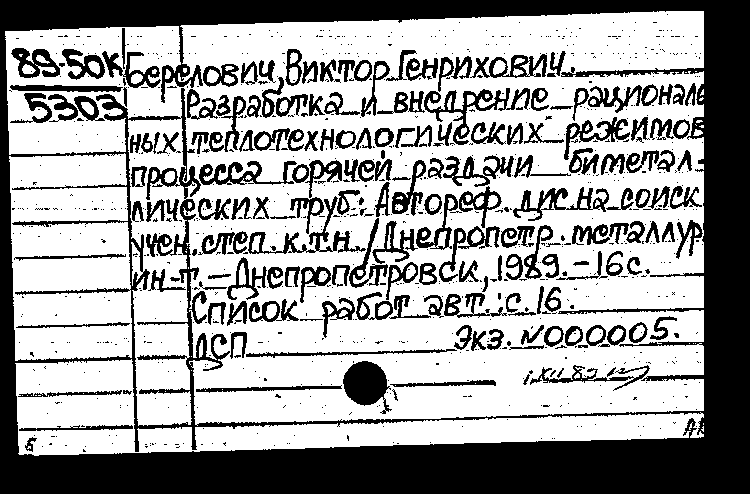 89-50К Берелович, Виктор Генрихович.
5303 Разработка и внедрение рациональ
ных теплотехнологических режимов
процесса горячей раздачи биметал-
лических труб: Автореф. дис. на соиск
учен. степ. к.т.н. / Днепропетр. металлур
ин-т. – Днепропетровск, 1989. – 16 с.
Список работ авт.: с. 16.
ДСП Экз. N000005.
5